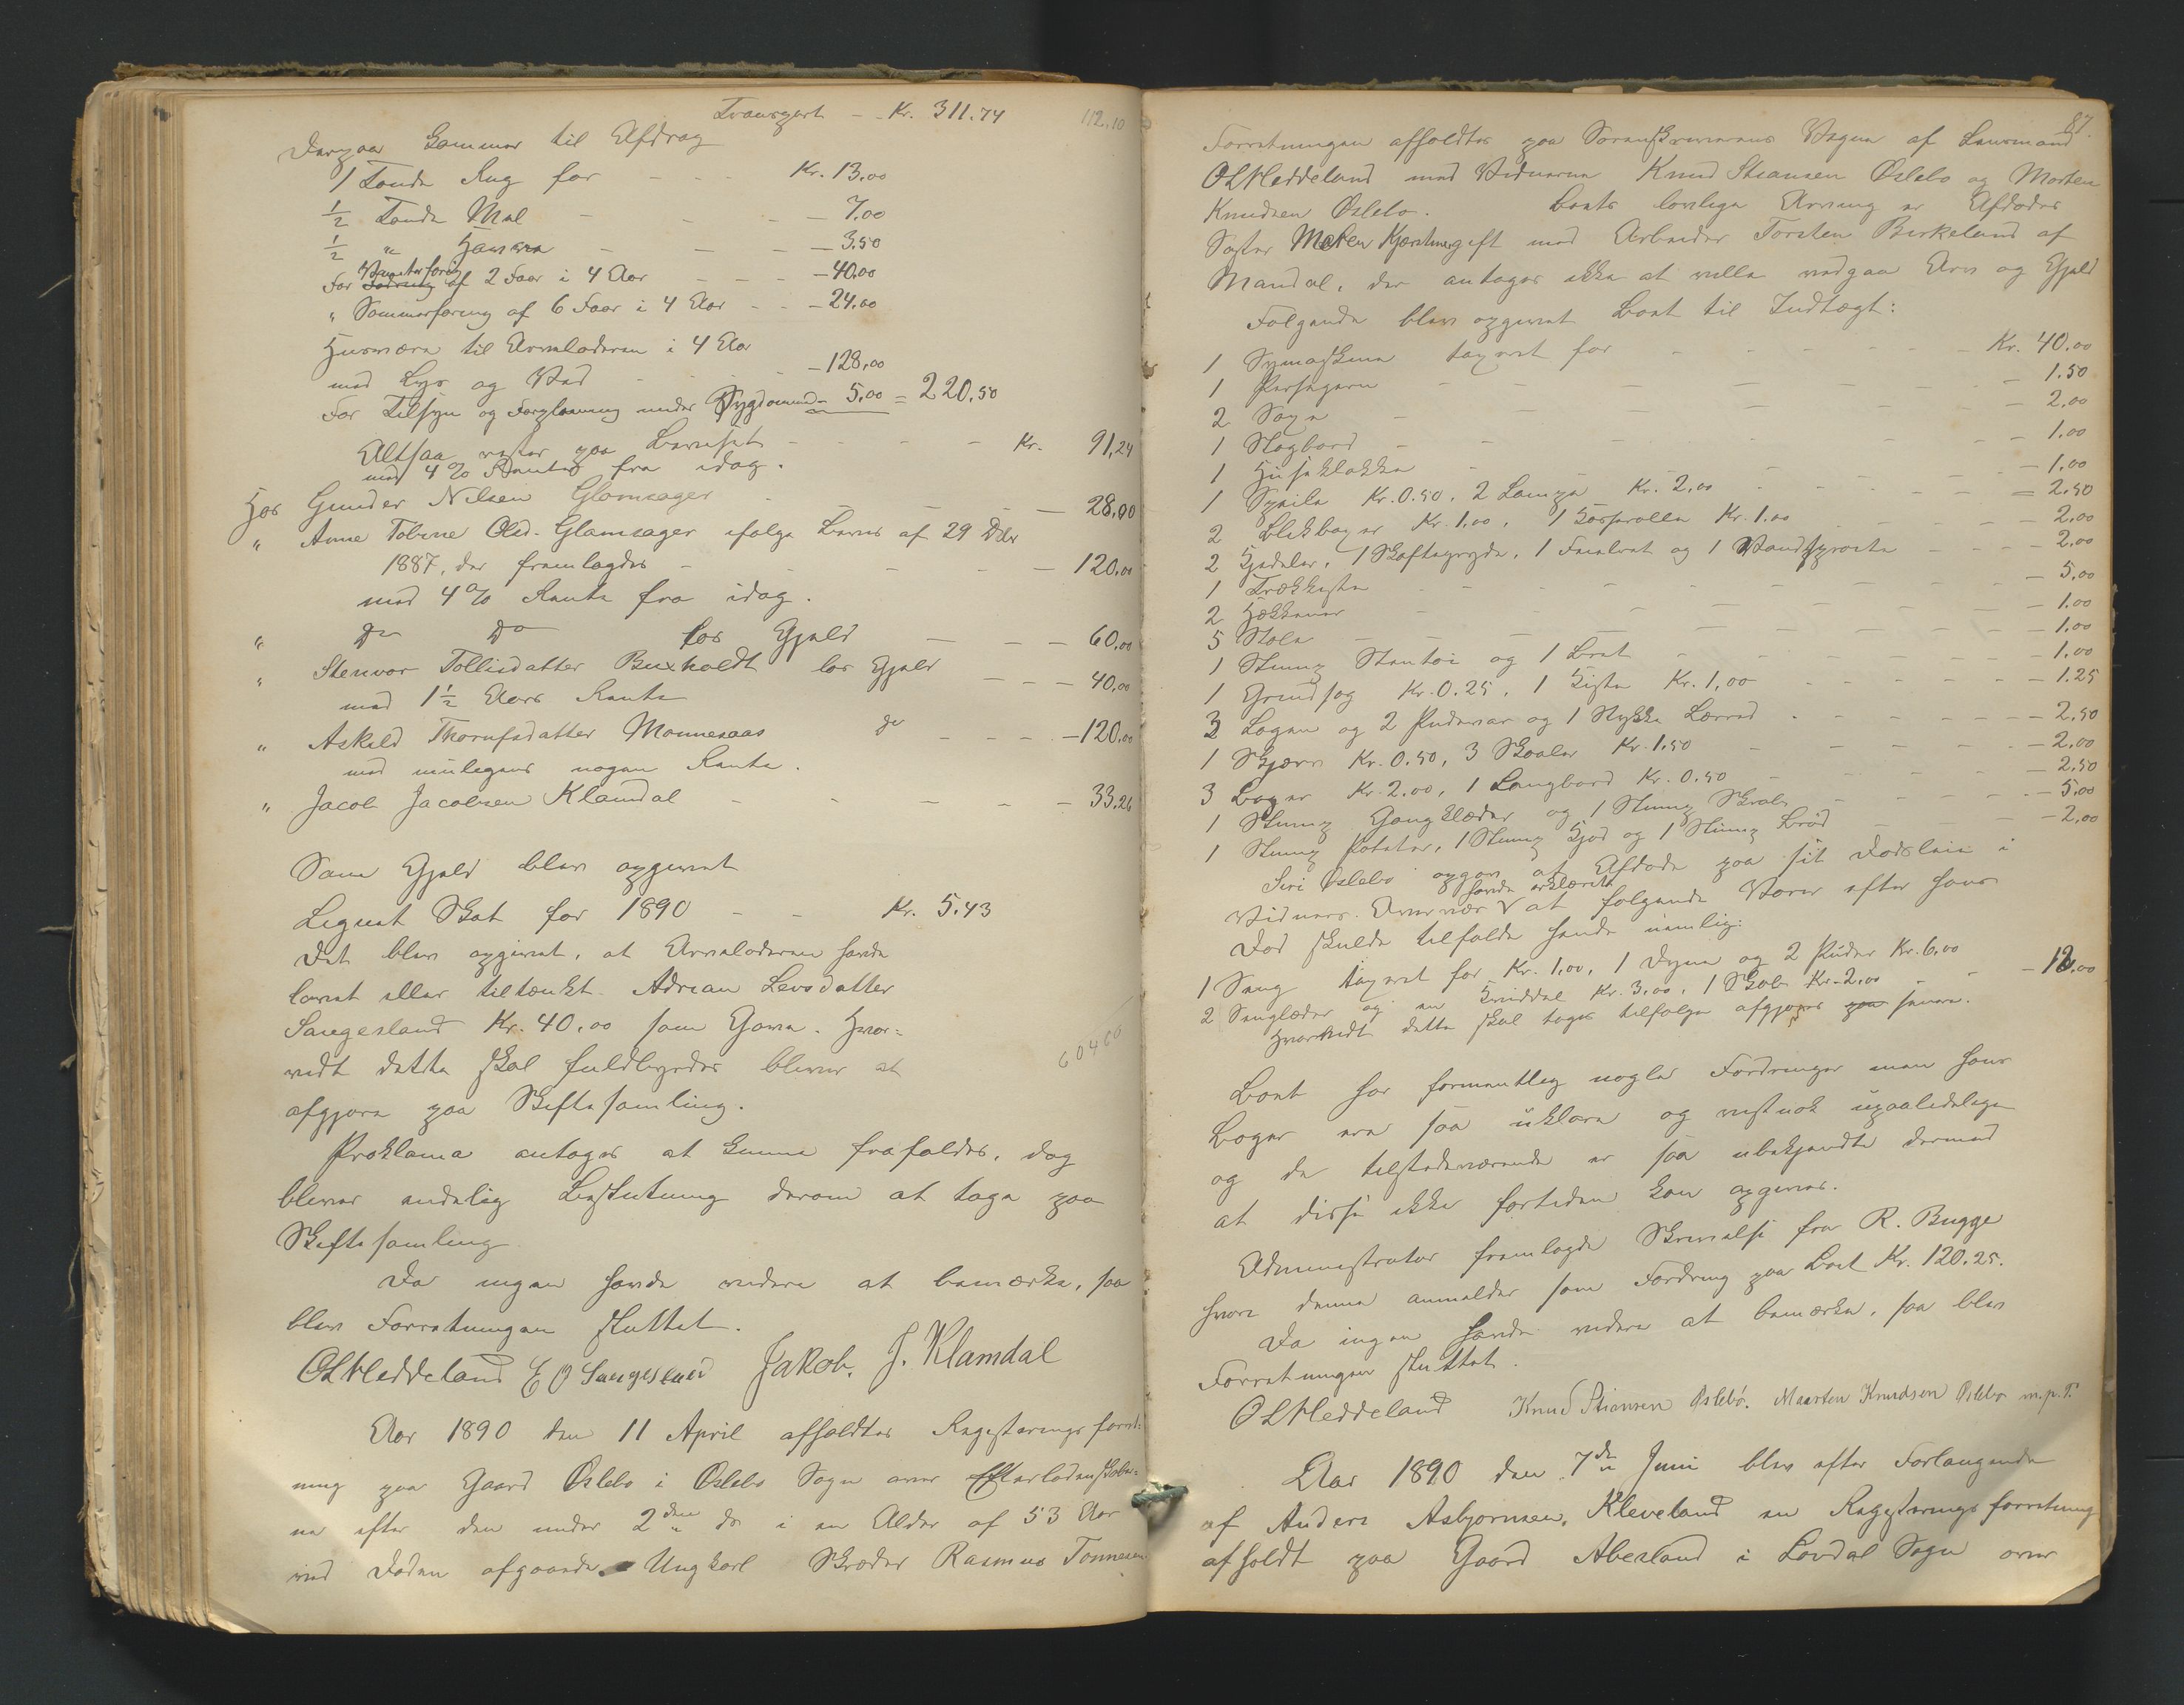 Transport - - Kr. 311.74
112.10
Derpaa kommer til Afdrag
1 Tønde Rug for - - - Kr. 13.00
1/2 Tønde Mel - - - - 7.00
1/2 " Havre - - - - 3.50
For Vinterforing af 2 Faar i 4 Aar - - - - 40.00
" Sommerforing af 6 Faar i 4 Aar - - - 24.00
Husvære til Arveladeren i 4 Aar
med Lys og Ved - - - - 128.00
For Tilsyn og Forpleining under Sygdommen - 5.00 = 220.50
Altsaa rester paa Beviset - - - - Kr. 91,24
med 4% Renter fra idag.
Hos Gunder Nilsen Glomsager - - - - 28.00
" Anne Tobine Olsd. Glamsager ifølge Bevis af 29 Dbr
1887, der fremlagdes - - - - - 120.00
med 4% Rente fra idag.
" do do løs Gjæld - - - 60.00
" Stenvor Tollisdatter Buxholdt løs Gjæld - - - 40.00
med 1 1/2 Aars Rente
" Askild Thorufsdatter Monnesaas do - - - - 120.00
med muligens nogen Rente.
" Jacob Jacobsen Klamdal - - - - - 33.26
Som Gjæld blev opgivet
Lignet Skat for 1890 - - Kr. 5.43
Det blev opgivet, at Arveladeren havde
lovet eller tiltænkt Adrian Levsdatter
Saugesland Kr. 40.00 som Gave. Hvor-
vidt dette skal fuldbyrdes bliver at
afgjøre paa Skiftesamling.
60460
Proklama antages at kunne frafaldes, dog
bliver endelig Beslutning derom at tage paa
Skiftesamling
Da ingen havde videre at bemærke, saa
blev Forretningen sluttet.
O L Heddeland E O Saugesland Jakob. J. Klamdal
Aar 1890 den 11 April afholdtes Registreringsforret-
ning paa Gaard Øslebø i Øslebø Sogn over Efterladenskaber-
ne efter den under 2den ds i en Alder af 53 Aar
ved Døden afgaaede Ungkarl Skræder Rasmus Tønnesen.
87.
Forretningen afholdtes paa Sorenskriverens Vegne af Lensmand
O L Heddeland med Vidnerne Knud Stiansen Øslebø og Morten
Knudsen Øslebø. Boets lovlige Arving er Afdødes
Søster Maren Kjerstine gift med Arbeider Torsten Birkeland af
Mandal, der antages ikke at ville vedgaa Arv og Gjæld
Følgende blev opgivet Boet til Indtægt:
1 Symaskine taxeret for - - - - - - Kr. 40.00
1 Persejern - - - - - - - 1.50
2 Saxe - - - - - - - 2.00
1 Slagbord - - - - - - - 1.00
1 Huseklokke - - - - - - - 1.00
1 Speile Kr. 0.50, 2 Lamper Kr. 2.00 - - - - - 2.50
2 Blikbøger Kr. 1.00, 1 Kasserolle Kr. 1.00 - - - - 2.00
2 Kjedeler, 1 Skaftegryde, 1 Freibrat og 1 Vandsprøite - - - - 2.00
1 Trækkiste - - - - - - - 5.00
2 Hækkener - - - - - - - 1.00
5 Stole - - - - - - - 1.00
1 Slump Stentøi og 1 Bret - - - - - - 1.00
1 Grindsag Kr. 0.25, 1 Kiste Kr. 1,00 - - - - - 1.25
3 Lagen og 2 Pudevar og 1 Stykke Lærred - - - - - 2.50
1 Skjærv Kr. 0.50, 3 Skaaler Kr. 1.50 - - - - - 2.00
3 Bøger Kr. 2.00, 1 Langbord Kr. 0.50 - - - - - 2.50
1 Slump Gangklæder og 1 Slump Skrab - - - - 5.00
1 Slump Poteter, 1 Slump Kjød og 1 Slump Brød - - - 2.00
Siri Øslebø opgav at Afdøde paa sit Dødsleie i
Vidners Overvær havde erklæret at følgende Varer efter hans
Død skulde tilfalde hende nemlig:
1 Seng taxeret for Kr. 1,00, 1 Dyne og 2 Puder Kr. 6.00
2 Senglæder og en Hviddel Kr. 3.00, 1 Skab Kr. 2.00 - - - 12.00
Hvorvidt dette skal tages tilfølge afgjøres paa senere.
Boet har formentlig nogle Fordringer men hans
Bøger ere saa uklare og vistnok upaalidelige
og de tilstedeværende er saa ubekjendte dermed
at disse ikke fortiden kan opgives.
Administrator fremlagde Skrivelse fra R. Bugge
hvori denne anmelder som Fordring paa Boet Kr. 120.25.
Da ingen havde videre at bemærke, saa blev
Forretningen sluttet.
O L Heddeland Knud Stiansen Øslebø. Maarten Knudsen Øslebø m.p.P.
Aar 1890 den 7de Juni blev efter Forlangende
af Anders Asbjørnsen, Kleveland en Registreringsforretning
afholdt paa Gaard Abesland i Løvdal Sogn over